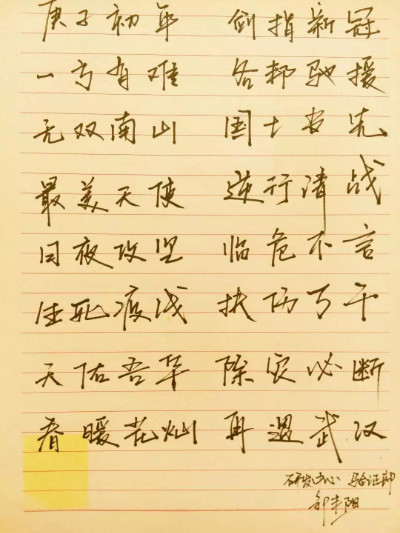 庚子初年 剑指新冠
一方有难 各邦驰援
无双南山 国士当先
最美天使 逆行请战
日夜攻坚 临危不言
生死疫线 扶伤万千
天佑吾华 除灾必断
春暖花灿 再遇武汉
研发中心 验证部